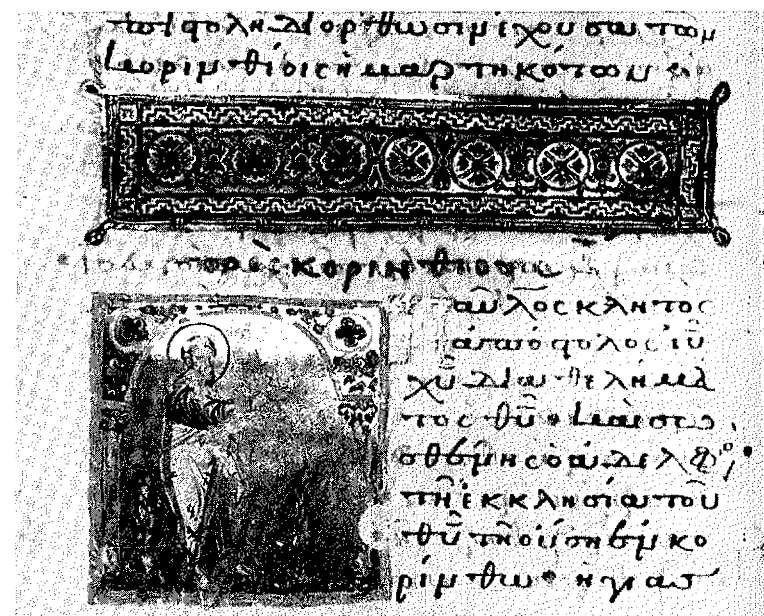 πιστολὴ διόρθωσιν ἔχουσα τῶν
κορινθίοις ἡμαρτηκότων
πρὸς κορινθίους
αῦλος κλητὸς
ἀπόστολος ιῦ
χῦ διὰ θελήμα
τος θῦ· καὶ σωσ
θένης ὁ ἀδελφός·
τῆ ἐκκλησία τοῦ
θῦ τῆ οὔση ἐν κο
ρίνθω· ἡγιασ